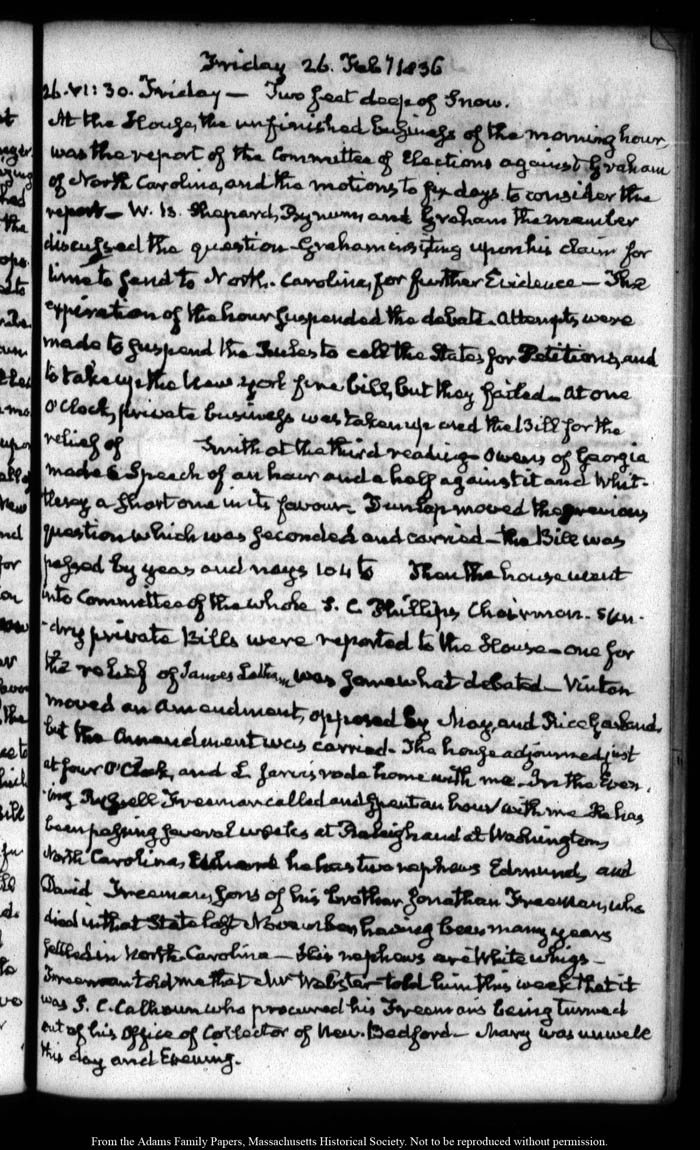 Friday 26. Feby 1836
26. VI:30. Friday — Two feet deep of Snow.
At the House, the unfinished business of the morning hour,
was the report of the Committee of Elections against Graham
of North Carolina, and the motions to fix days to consider the
report — W. B. Shepard, Bynum, and Graham the member
discussed the question Graham insisting upon his claim for
time to send to North Carolina, for further Evidence — The
expiration of the hour suspended the debate. Attempts were
made to suspend the Rules to call the States for Petitions, and
to take up the New York fire bill, but they failed — At one
O'Clock, private business was taken up and the Bill for the
relief of Smith at the third reading — Owens of Georgia
made a Speech of an hour and a half against it and Whit-
tlesey a short one in its favour — Dunlap moved the previous
question which was seconded and carried — the Bill was
passed by yeas and nays 104 to Then the house went
into Committee of the whole S. C. Phillips Chairman. Sun-
-dry private Bills were reported to the House — one for
the relief of James Latham was somewhat debated — Vinton
moved an Amendment, opposed by May, and Rice Garland,
but the Amendment was carried. The house adjourned just
at four O'Clock, and L. Jarvis rode home with me. In the Even-
-ing Russell Freeman called and spent an hour with me He has
been passing several weeks at Raleigh and at Washington,
North Carolina, where he has two nephews Edmund, and
David Freeman, sons of his brother Jonathan Freeman, who
died in that State last November, having been many years
settled in North Carolina — His nephews are White whigs —
Freeman told me that Mr Webster told him this week that it
was J. C. Calhoun who procured his Freeman's being turned
out of his Office of Collector of New-Bedford — Mary was unwell
this day and Evening.
From the Adams Family Papers, Massachusetts Historical Society. Not to be reproduced without permission.